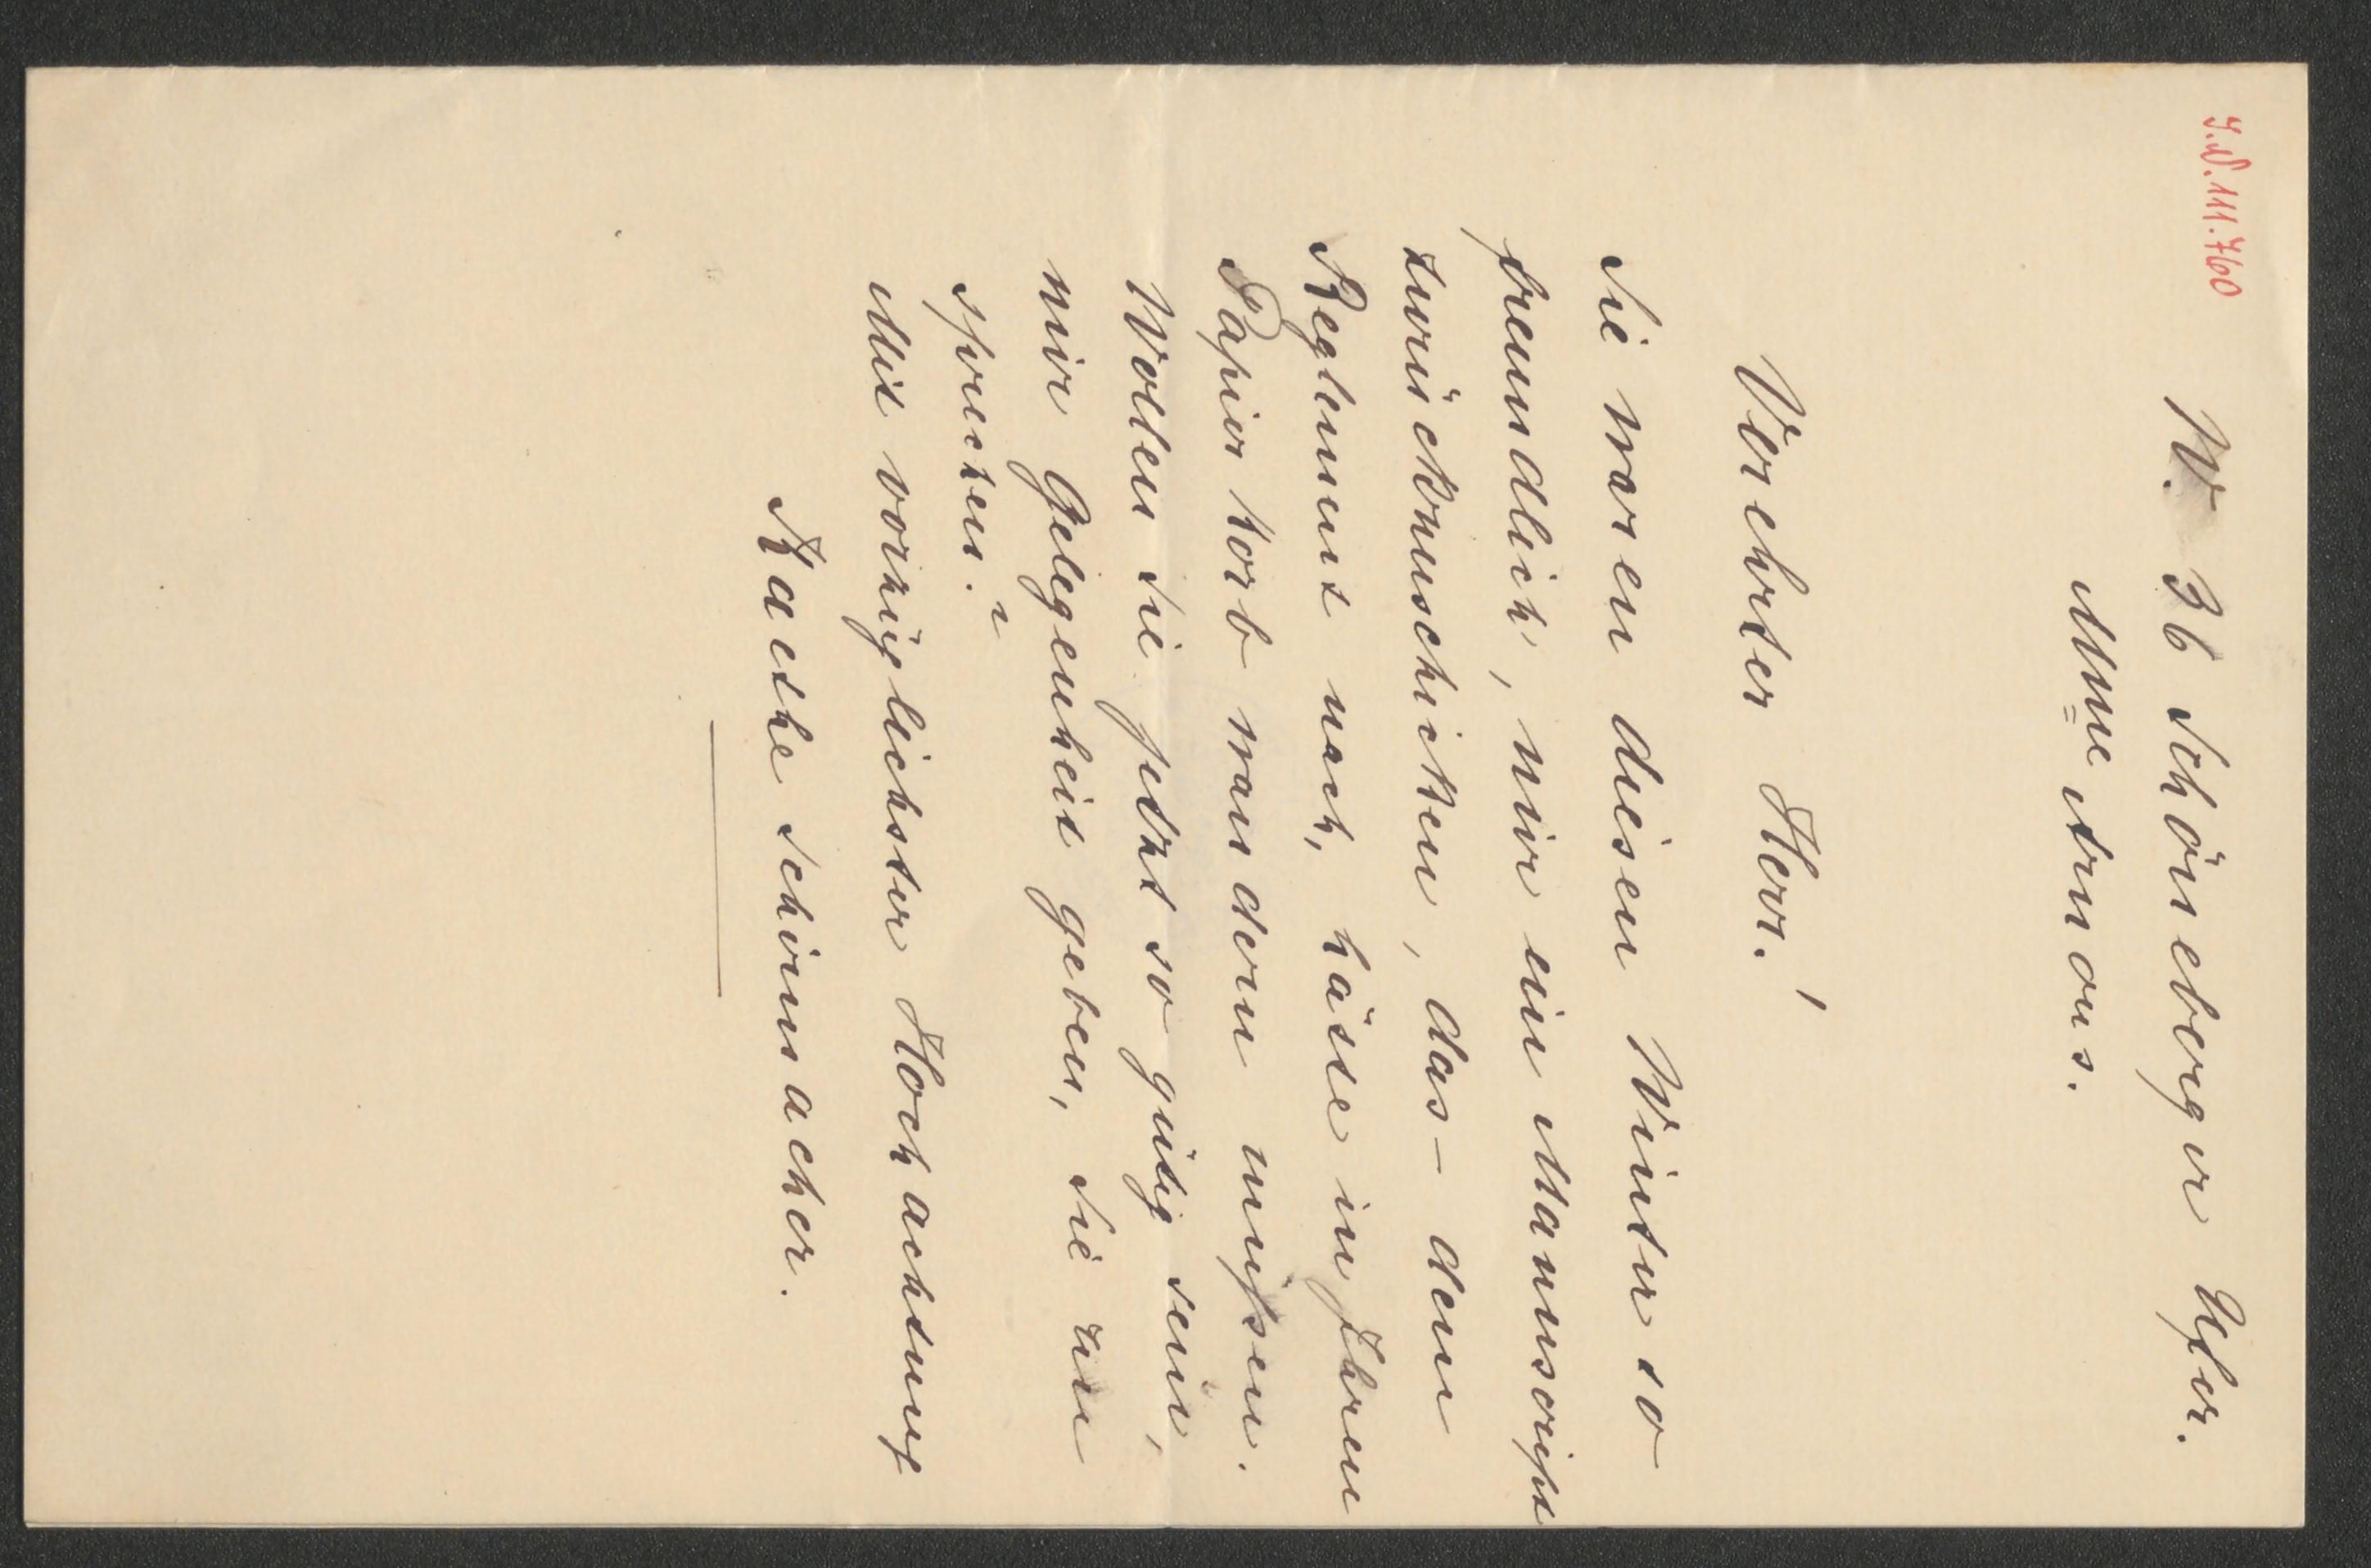 J.N. 111.760
W. 36 Schöneberger Ufer.
Mme Arnous.
Verehrter Herr!
Sie waren diesen Winter so
freundlich, mir ein Manuscript
zurückzuschicken, das - dem
Reglement nach, hätte in Ihren
Papierkorb wandern müssen.
Wollen Sie jetzt so gütig sein,
mir Gelegenheit geben, Sie zu
sprechen?
Mit vorzüglichster Hochachtung
Kaethe Schirmacher.